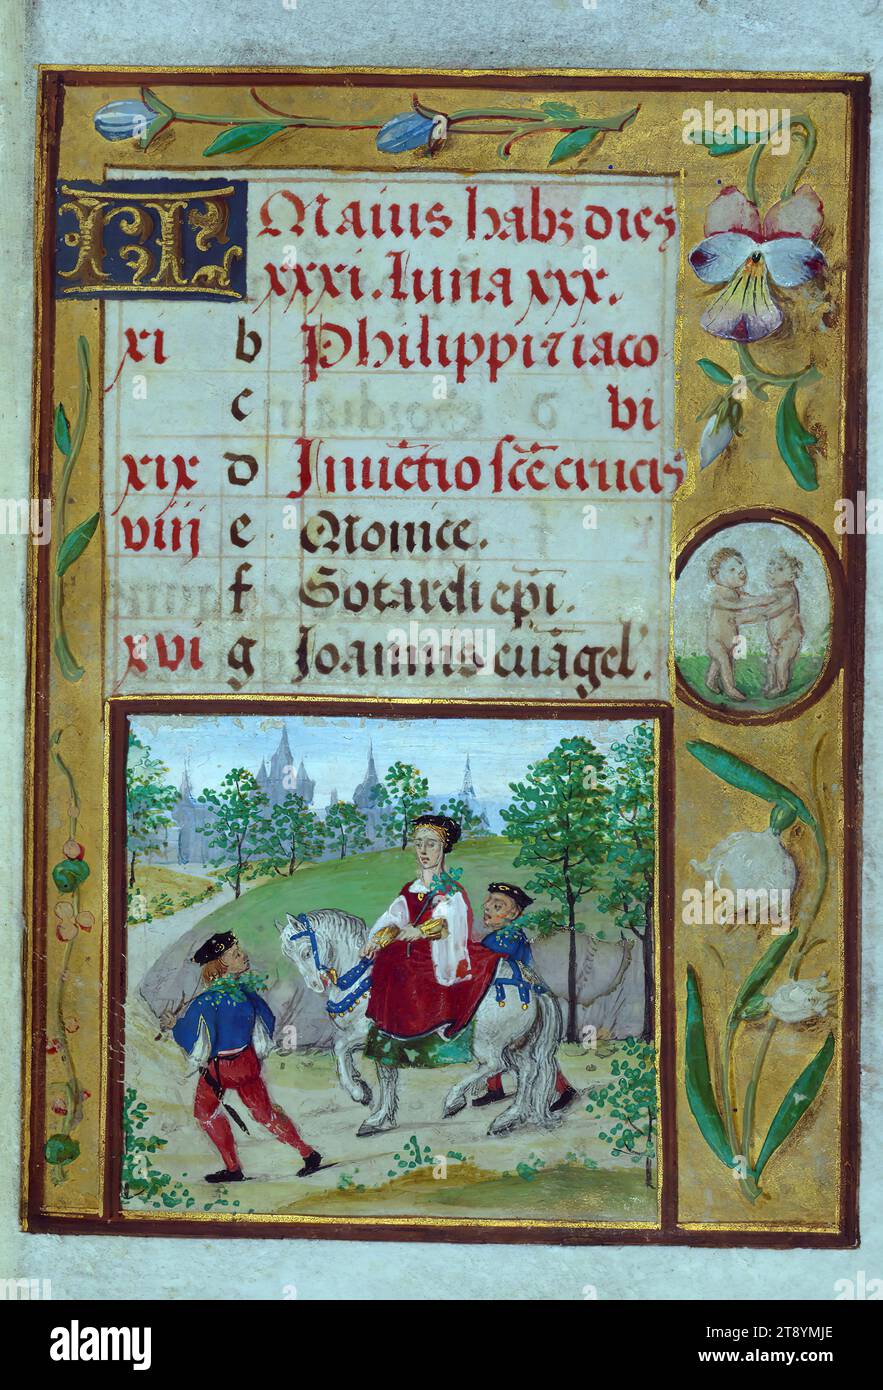 KL Maius habꝫ dies
xxxi. Luna xxx.
xi b Philippi ⁊ iaco
c bi
xix d Inuētio scē crucis
viij e Monice.
f Gotardi epī.
xvi g Joannis euāgel'
alamy
Image ID: 2T8YMJE
www.alamy.com